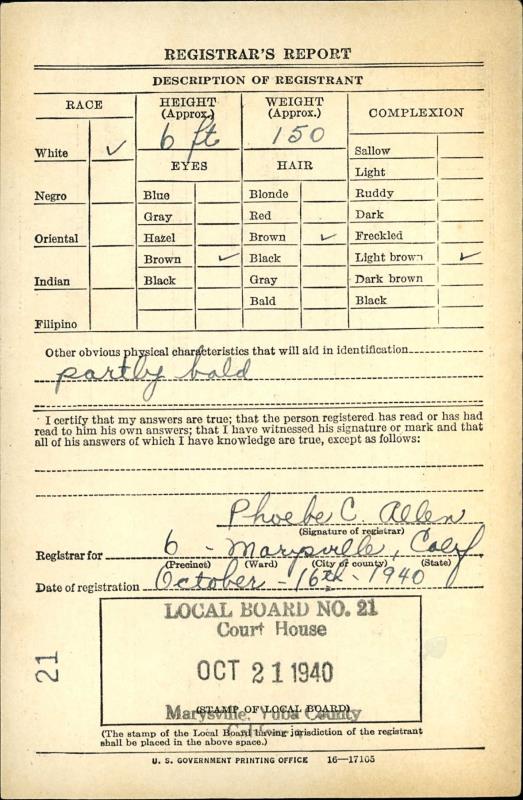 REGISTRAR'S REPORT
DESCRIPTION OF REGISTRANT
RACE
HEIGHT
(Approx.)
WEIGHT
(Approx.)
COMPLEXION
6 ft
150
White ✓
EYES
HAIR
Sallow
Light
Negro
Blue
Blonde
Ruddy
Gray
Red
Dark
Oriental
Hazel
Brown ✓
Freckled
Brown ✓
Black
Light brown ✓
Indian
Black
Gray
Dark brown
Bald
Black
Filipino
Other obvious physical characteristics that will aid in identification
partly bald
I certify that my answers are true; that the person registered has read or has had
read to him his own answers; that I have witnessed his signature or mark and that
all of his answers of which I have knowledge are true, except as follows:
Phoebe C. Allen
(Signature of registrar)
Registrar for 6 - Marysville, Calif
(Precinct) (Ward) (City or county) (State)
Date of registration October - 16th - 1940
LOCAL BOARD NO. 21
Court House
21
OCT 21 1940
(STAMP OF LOCAL BOARD)
Marysville, Yuba County
(The stamp of the Local Board having jurisdiction of the registrant
shall be placed in the above space.)
U. S. GOVERNMENT PRINTING OFFICE 16—17105